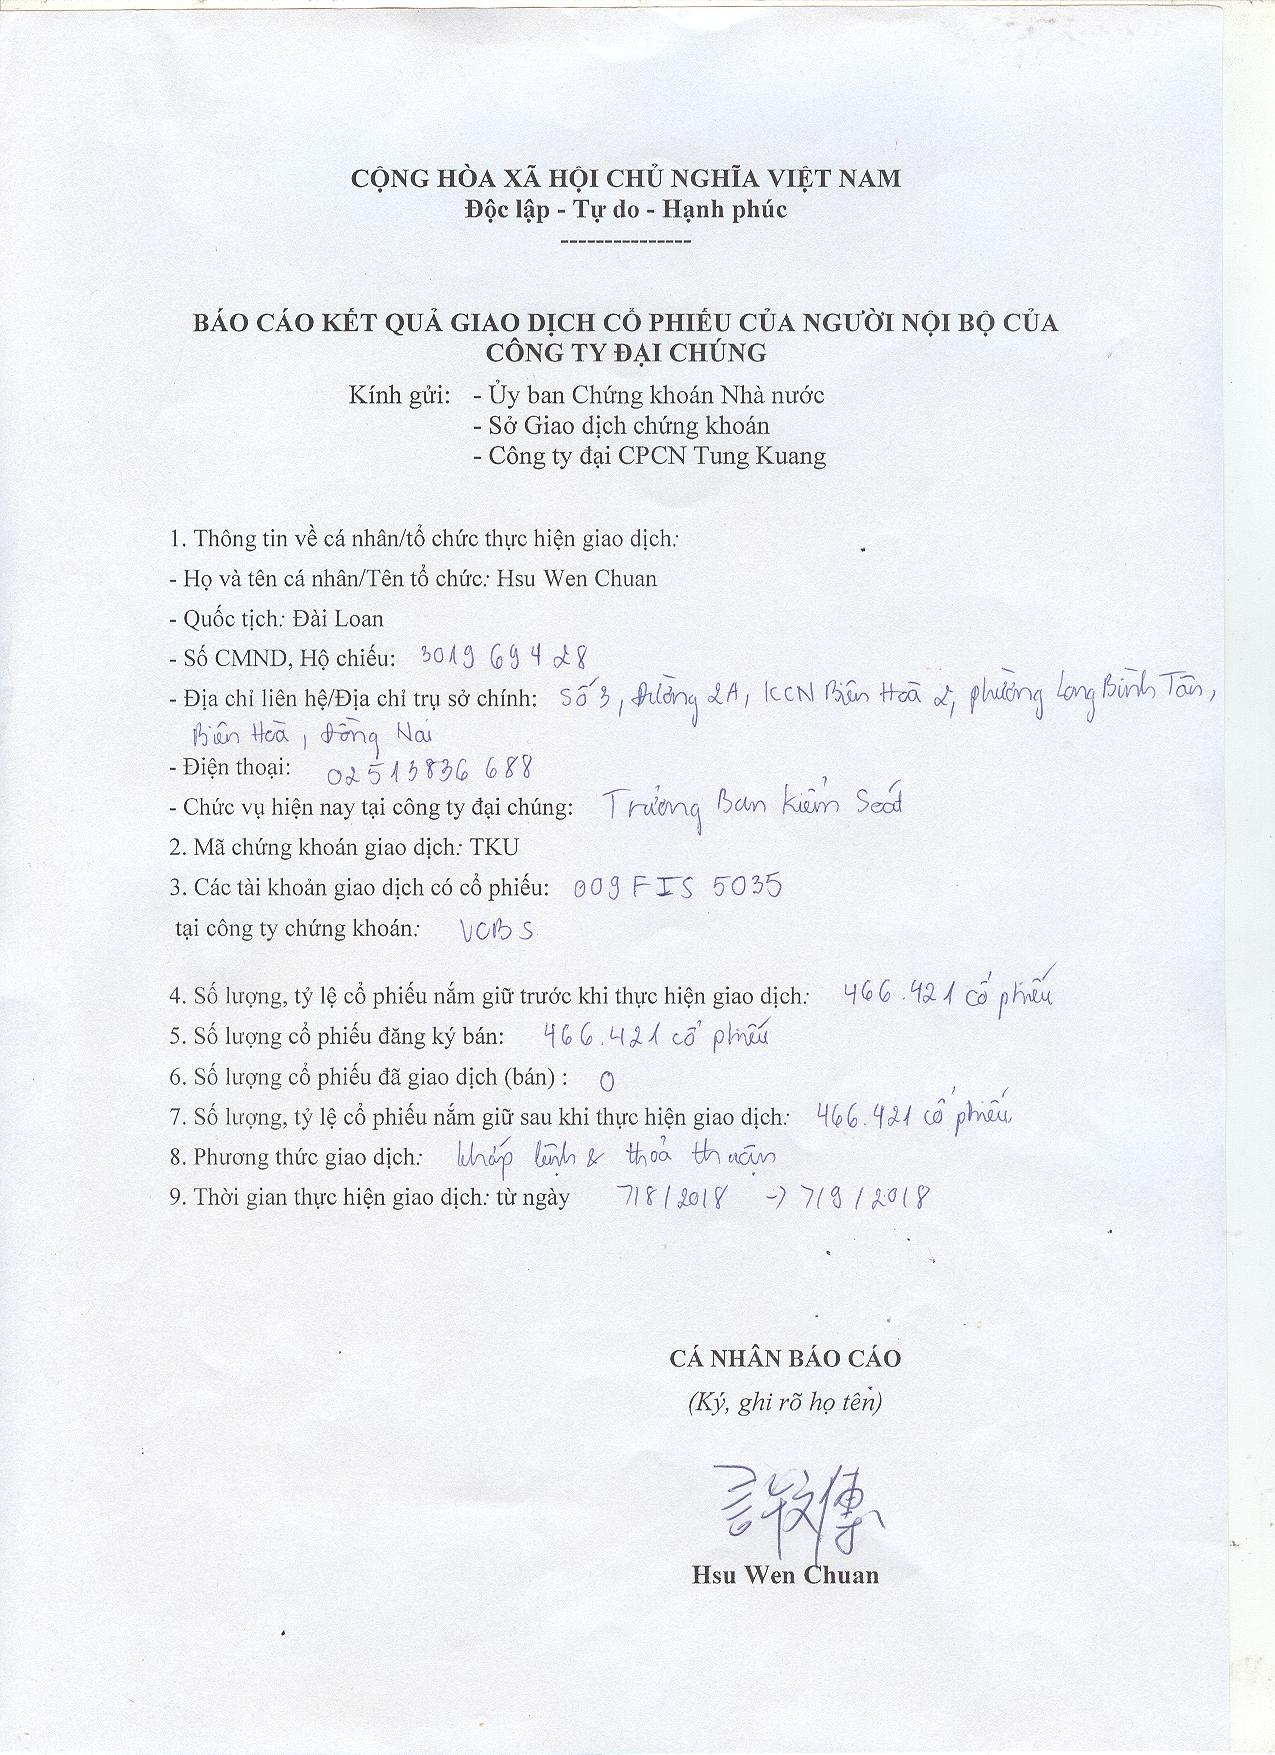 CỘNG HÒA XÃ HỘI CHỦ NGHĨA VIỆT NAM
Độc lập - Tự do - Hạnh phúc
---------------
BÁO CÁO KẾT QUẢ GIAO DỊCH CỔ PHIẾU CỦA NGƯỜI NỘI BỘ CỦA
CÔNG TY ĐẠI CHÚNG
Kính gửi: - Ủy ban Chứng khoán Nhà nước
- Sở Giao dịch chứng khoán
- Công ty đại CPCN Tung Kuang
1. Thông tin về cá nhân/tổ chức thực hiện giao dịch:
- Họ và tên cá nhân/Tên tổ chức: Hsu Wen Chuan
- Quốc tịch: Đài Loan
- Số CMND, Hộ chiếu: 301969428
- Địa chỉ liên hệ/Địa chỉ trụ sở chính: Số 3, Đường 2A, KCN Biên Hoà 2, phường Long Bình Tân,
Biên Hoà, Đồng Nai
- Điện thoại: 02513836 688
- Chức vụ hiện nay tại công ty đại chúng: Trưởng Ban Kiểm Soát
2. Mã chứng khoán giao dịch: TKU
3. Các tài khoản giao dịch có cổ phiếu: 009FIS 5035
tại công ty chứng khoán: VCBS
4. Số lượng, tỷ lệ cổ phiếu nắm giữ trước khi thực hiện giao dịch: 466.421 cổ phiếu
5. Số lượng cổ phiếu đăng ký bán: 466.421 cổ phiếu
6. Số lượng cổ phiếu đã giao dịch (bán) : 0
7. Số lượng, tỷ lệ cổ phiếu nắm giữ sau khi thực hiện giao dịch: 466.421 cổ phiếu
8. Phương thức giao dịch: khớp lệnh & thoả thuận
9. Thời gian thực hiện giao dịch: từ ngày 7/8/2018 -> 7/9/2018
CÁ NHÂN BÁO CÁO
(Ký, ghi rõ họ tên)
許文傳
Hsu Wen Chuan